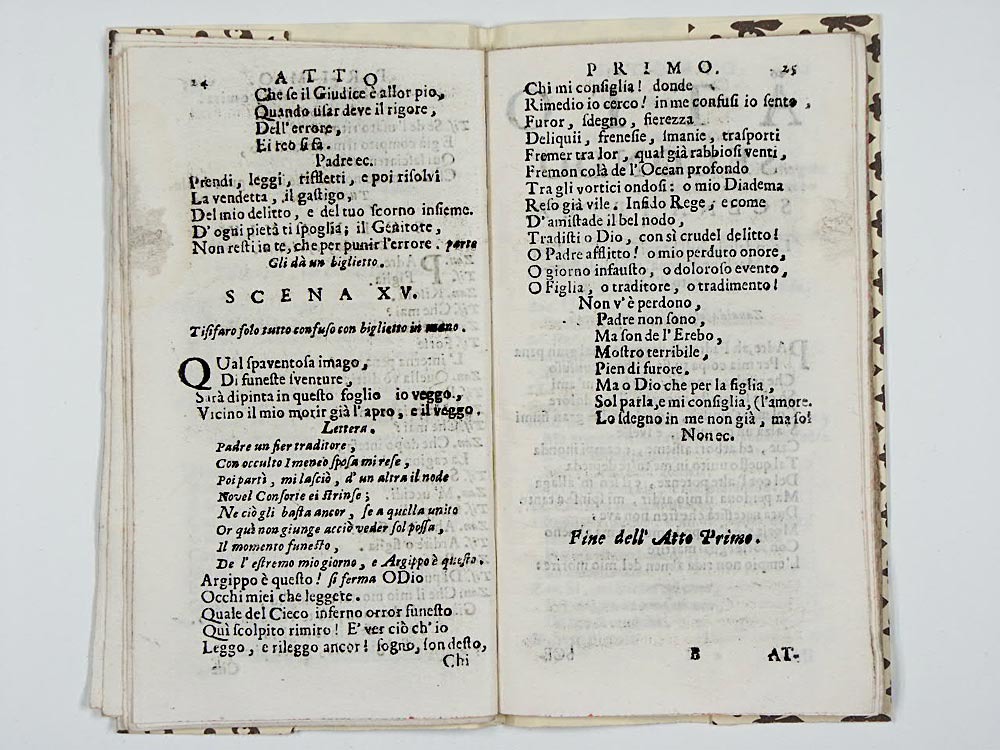 24 ATTO
Che se il Giudice è allor pio,
Quando usar deve il rigore,
Dell' errore,
Ei reo si fa.
Padre ec.
Prendi, leggi, riffletti, e poi risolvi
La vendetta, il gastigo,
Del mio delitto, e del tuo scorno insieme.
D' ogni pietà ti spoglia; il Genitore,
Non resti in te, che per punir l'errore. parte
Gli dà un biglietto.
SCENA XV.
Tisifaro solo tutto confuso con biglietto in mano.
QUal spaventosa imago,
Di funeste sventure,
Sarà dipinta in questo foglio io veggo,
Vicino il mio morir già l'apro, e il veggo.
Lettera.
Padre un fier traditore,
Con occulto Imeneo sposa mi rese,
Poi partì, mi lasciò, d' un altra il nodo
Novel Consorte ei strinse;
Ne ciò gli basta ancor, se a quella unito
Or quì non giunge acciò veder sol possa,
Il momento funesto,
De l' estremo mio giorno, e Argippo è questo.
Argippo è questo! si ferma O Dio
Occhi miei che leggete.
Quale del Cieco inferno orror funesto
Quì scolpito rimiro! E' ver ciò ch' io
Leggo, e rileggo ancor! sogno, son desto,
Chi
PRIMO. 25
Chi mi consiglia! donde
Rimedio io cerco! in me confusi io sento,
Furor, sdegno, fierezza
Deliquii, frenesie, smanie, trasporti
Fremer tra lor, qual già rabbiosi venti,
Fremon colà de l'Ocean profondo
Tra gli vortici ondosi: o mio Diadema
Reso già vile, Infido Rege, e come
D' amistade il bel nodo,
Tradisti o Dio, con sì crudel delitto!
O Padre afflitto! o mio perduto onore,
O giorno infausto, o doloroso evento,
O Figlia, o traditore, o tradimento!
Non v' è perdono,
Padre non sono,
Ma son de l' Erebo,
Mostro terribile,
Pien di furore.
Ma o Dio che per la figlia,
Sol parla, e mi consiglia, (l'amore.
Lo sdegno in me non già, ma sol
Non ec.
Fine dell' Atto Primo.
B AT-